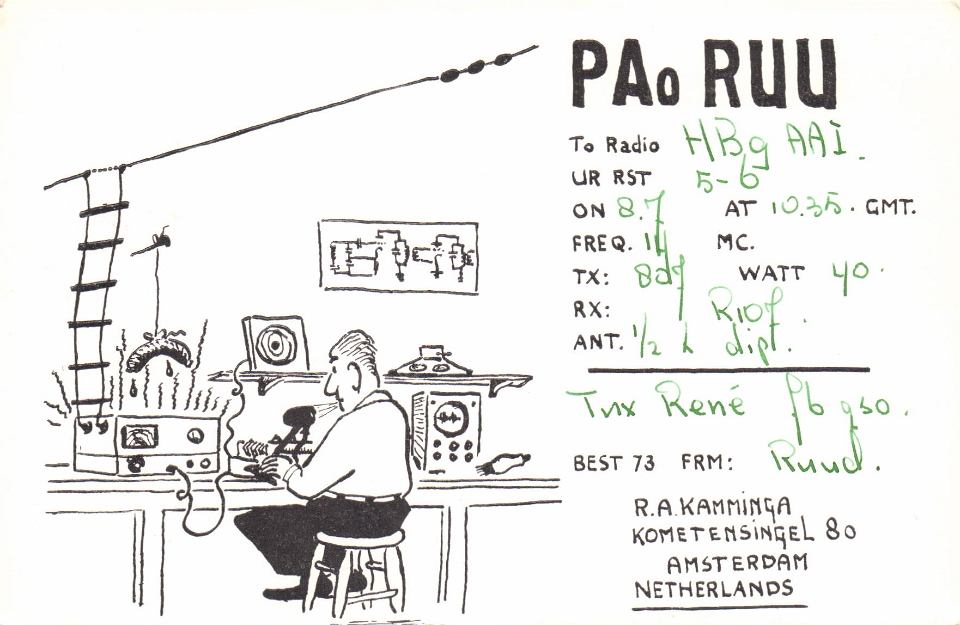 PAo RUU
To Radio HB9 AAI.
UR RST 5-6
ON 8.7 AT 10.35. GMT.
FREQ. 14 MC.
TX: 807 WATT 40.
RX: R107.
ANT. 1/2 λ dipl.
Tnx René fb qso.
BEST 73 FRM: Ruud.
R.A.KAMMINGA
KOMETENSINGEL 80
AMSTERDAM
NETHERLANDS